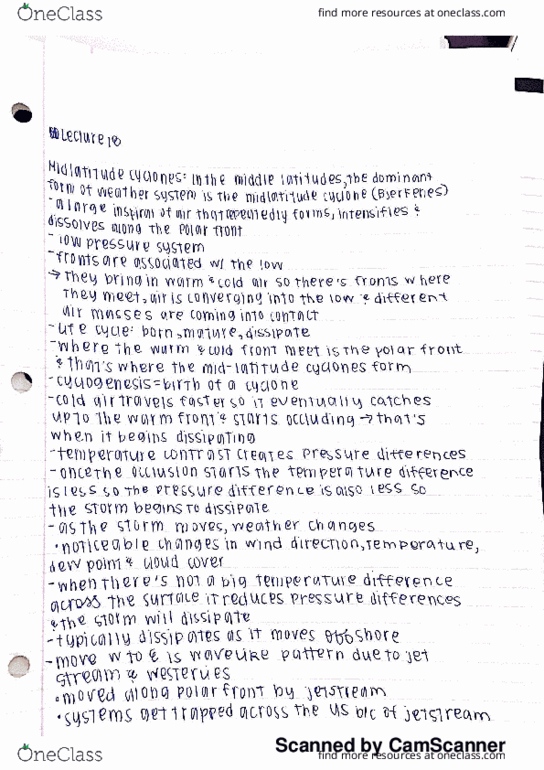 OneClass
find more resources at oneclass.com
Lecture 18
Midlatitude cyclones: In the middle latitudes, the dominant
form of weather system is the midlatitude cyclone (Bjerknes)
- a large inspiral of air that repeatedly forms, intensifies &
dissolves along the polar front
- low pressure system
- fronts are associated w/ the low
→ They bring in warm & cold air so there's fronts where
They meet, air is converging into the low & different
air masses are coming into contact
- life cycle: born, mature, dissipate
- where the warm & cold front meet is the polar front
& that's where the mid-latitude cyclones form
- cyclogenesis = birth of a cyclone
- cold air travels faster so it eventually catches
up to the warm front & starts occluding → that's
when it begins dissipating
- temperature contrast creates pressure differences
- once the occlusion starts the temperature difference
is less so the pressure difference is also less so
the storm begins to dissipate
- as the storm moves, weather changes
• noticeable changes in wind direction, temperature,
dew point & cloud cover
- when there's not a big temperature difference
across the surface it reduces pressure differences
& the storm will dissipate
- typically dissipates as it moves offshore
- move W to E is wavelike pattern due to jet
stream & westerlies
• moved along polar front by jetstream
• systems get trapped across the US b/c of jetstream
Scanned by CamScanner
OneClass
find more resources at oneclass.com